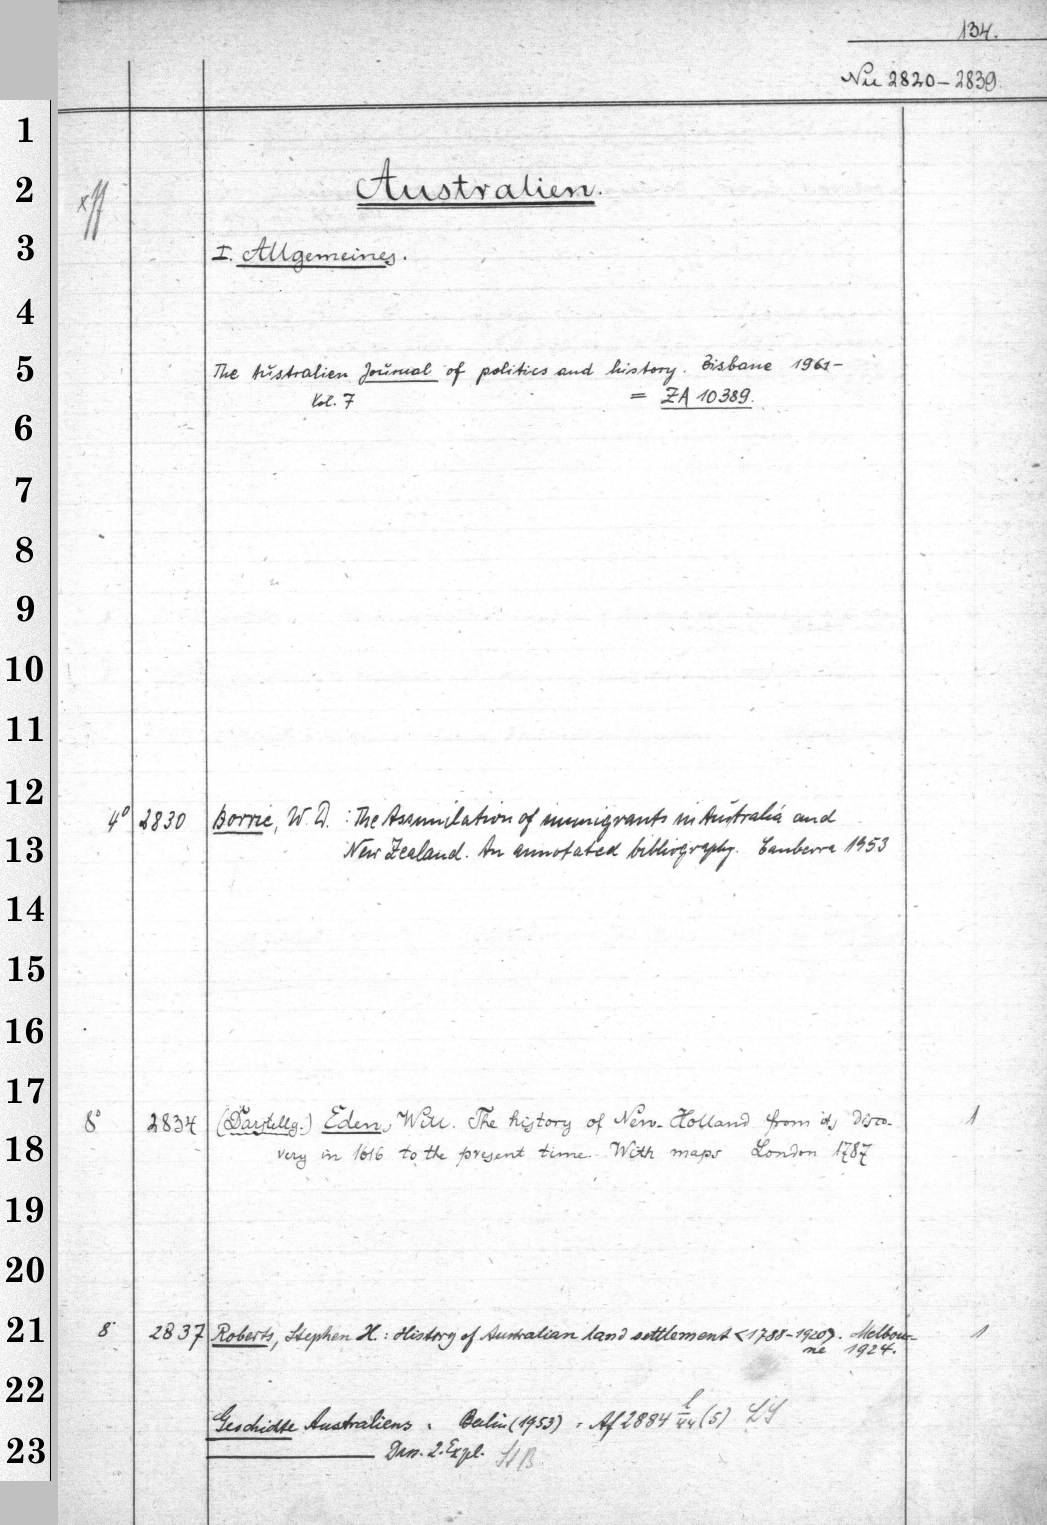 134.
Nu 2820-2839
Australien.
I. Allgemeines.
The Australien Journal of politics and history. Bisbane 1961-
Vol. 7 = ZA 10389.
4° 2830 Borrie, W. D. : The Assimilation of immigrants in Australia and
New Zealand. An annotated bibliography. Canberra 1953
8° 2834 (Darstellg.) Eden, Will. The history of New-Holland from its disco-
very in 1616 to the present time. With maps London 1787 1
8° 2837 Roberts, Stephen H.: History of Australian land settlement <1788-1920>. Melbour-
ne 1924. 1
Geschichte Australiens. Berlin (1953) = Af 2884 (5) LS
Dass. 2. Expl. StB
1
2
3
4
5
6
7
8
9
10
11
12
13
14
15
16
17
18
19
20
21
22
23